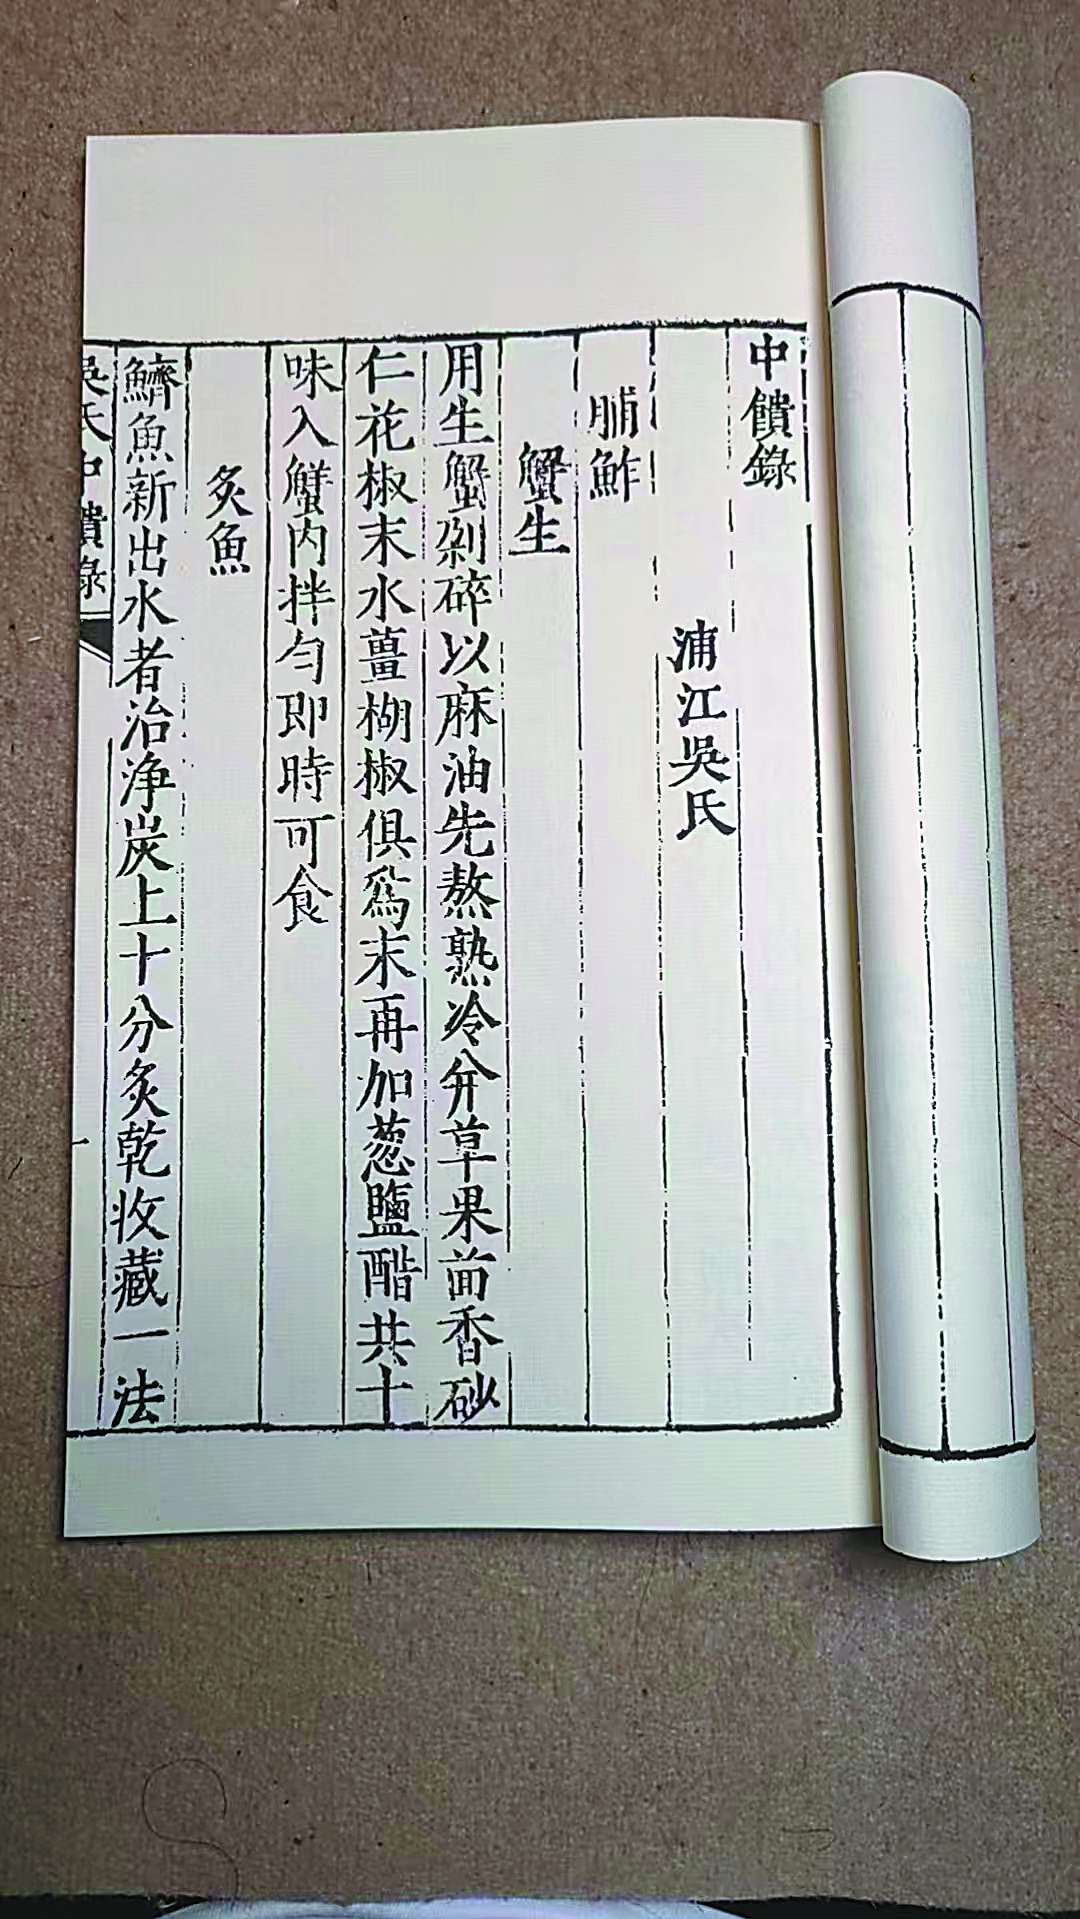 中饋錄
浦江吳氏
脯鮓
蟹生
用生蟹剁碎以麻油先熬熟冷并草果茴香砂
仁花椒末水薑糊椒俱爲末再加葱鹽醋共十
味入蟹内拌匀即時可食
炙魚
鱭魚新出水者治净炭上十分炙乾收藏一法
吳氏中饋錄
一